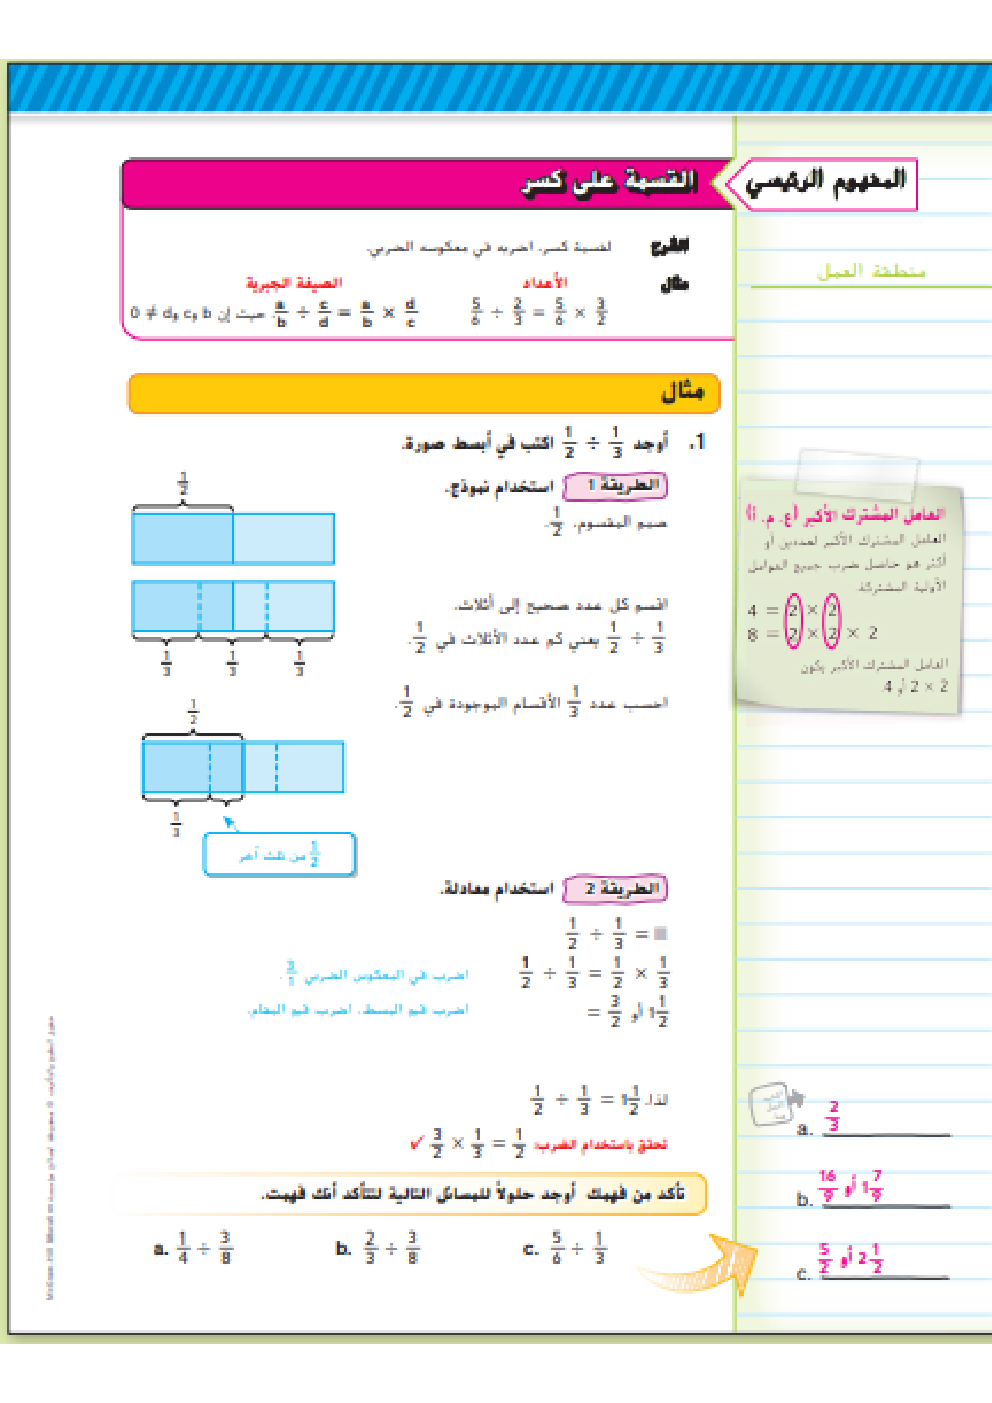 المفهوم الرئيسي
القسمة على كسر
الشرح لقسمة كسر، اضربه في معكوسه الضربي.
مثال الأعداد الصيغة الجبرية
5/6 ÷ 2/3 = 5/6 × 3/2
a/b ÷ c/d = a/b × d/c، حيث إن b وc وd ≠ 0
منطقة العمل
مثال
1. أوجد 1/2 ÷ 1/3 اكتب في أبسط صورة.
الطريقة 1 استخدام نموذج.
صمم المقسوم، 1/2.
1/2
اقسم كل عدد صحيح إلى أثلاث.
1/2 ÷ 1/3 يعني كم عدد الأثلاث في 1/2.
1/3 1/3 1/3
احسب عدد 1/3 الأقسام الموجودة في 1/2.
1/2
1/3
1/2 من ثلث آخر
العامل المشترك الأكبر (ع. م. أ)
العامل المشترك الأكبر لعددين أو
أكثر هو حاصل ضرب جميع العوامل
الأولية المشتركة.
4 = 2 × 2
8 = 2 × 2 × 2
العامل المشترك الأكبر يكون
2 × 2 أو 4.
الطريقة 2 استخدام معادلة.
1/2 ÷ 1/3 = ■
1/2 ÷ 1/3 = 1/2 × 1/3 اضرب في المعكوس الضربي
= 3/2 أو 1 1/2 اضرب قيم البسط، اضرب قيم المقام.
لذا، 1/2 ÷ 1/3 = 1 1/2
تحقق باستخدام الضرب: 3/2 × 1/3 = 1/2 ✓
تأكد من فهمك أوجد حلولاً للمسائل التالية لتتأكد أنك فهمت.
a. 1/4 ÷ 3/8 b. 2/3 ÷ 3/8 c. 5/6 ÷ 1/3
a. 2/3
b. 16/9 أو 1 7/9
c. 5/2 أو 2 1/2